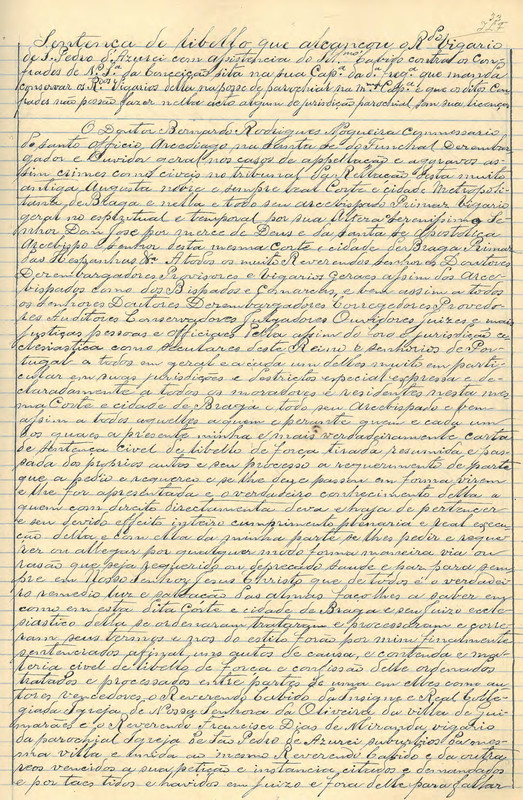 Sentença de libello, que alcançou o Rdo Vigario
de S. Pedro d'Azurei com assistencia do Illmo Cabido contra os Con-
frades de N. Sra da Conceição sita na sua Capa da da fregª que manda
conservar os Rdos Vigarios della na posse de parochiar na ma Capa e que os ditos Con-
frades não possão fazer nella acto algum de jurisdição parochial sem sua licença
O Doutor Bernardo Rodrigues Nogueira Commessario
do santo officio, Arcediago na Santa Sé do Funchal Desembar-
gador e Ouvidor geral nos casos de appellação e aggravos as-
sim crimes como civeis no tribunal da Rellação desta muito
antiga, Augusta nobre e sempre leal Corte e cidade Metropoli-
tana de Braga e nella e todo seu arcebispado Primaz vigario
geral no espiritual e temporal por sua Alteza Serenissima o Se-
nhor Dom José por merce de Deus e da santa Sé apostolica
Arcebispo e Senhor desta mesma Corte e cidade de Braga Primaz
das Hespanhas &c. A todos os muito Reverendos Senhores Doutores
Dezembargadores Provisores e Vigarios Geraes assim dos Arce-
bispados como dos Bispados e Comarcas, e bem assim a todos
os Senhores Doutores Dezembargadores Corregedores Provedo-
res Auditores Conservadores Julgadores Ouvidores Juizes e mais
justiças pessoas e officiaes della assim do foro e jurisdição ec-
clesiastica como seculares deste Reino e senhorios de Por-
tugal a todos em geral e a cada um delles muito em parti-
cular em suas jurisdições e destrictos especial expressa e de-
claradamente a todos os moradores e residentes nesta mes-
ma Corte e cidade de Braga e todo seu Arcebispado e bem
assim a todos aquelles a quem e perante quem e cada um
dos quaes a presente minha e mais verdadeiramente carta
de sentença civel de libello de força tirada resumida e pas-
sada dos proprios autos e seu processo a requerimento de parte
que a pedio e requereo e se lhe deu e passou em forma virem
e lhe for apresentada e o verdadeiro conhecimento della a
quem com direito directamente deva e haja de pertencer
e seu devido effeito inteiro cumprimento plenaria e real execu-
ção della e com ella da minha parte se lhes pedir e reque-
rer ou allegar por qualquer modo forma maneira via ou
rasão que seja requerido ou deprecado saude e paz para sem-
pre em Nosso Senhor Jesus Christo que de todos é o verdadei-
ro remedio luz e salvação das almas faço lhes a saber em
como em esta dita Corte e cidade de Braga e seu juizo eccle-
siastico della se ordenaram trataram e processaram e corre-
ram seus termos e nos do estilo forão por mim finalmente
sentenciados afinal uns autos de causa, e contenda e ma-
teria civel de libello de força e confissão delle ordenados
tratados e processados entre partes de uma em elles como au-
tores vencedores, o Reverendo Cabido da Insigne e Real Colle-
giada Igreja de Nossa Senhora da Oliveira da villa de Gui-
marães e o Reverendo Francisco Dias de Miranda, vigario
da parochial Igreja de São Pedro de Azurei suburbios da mes-
ma villa e unida ao mesmo Reverendo Cabido e da outra
reos vencidos a sua petição e instancia, citados e demandados
e por taes tidos e havidos em juizo e fora delle para fallar